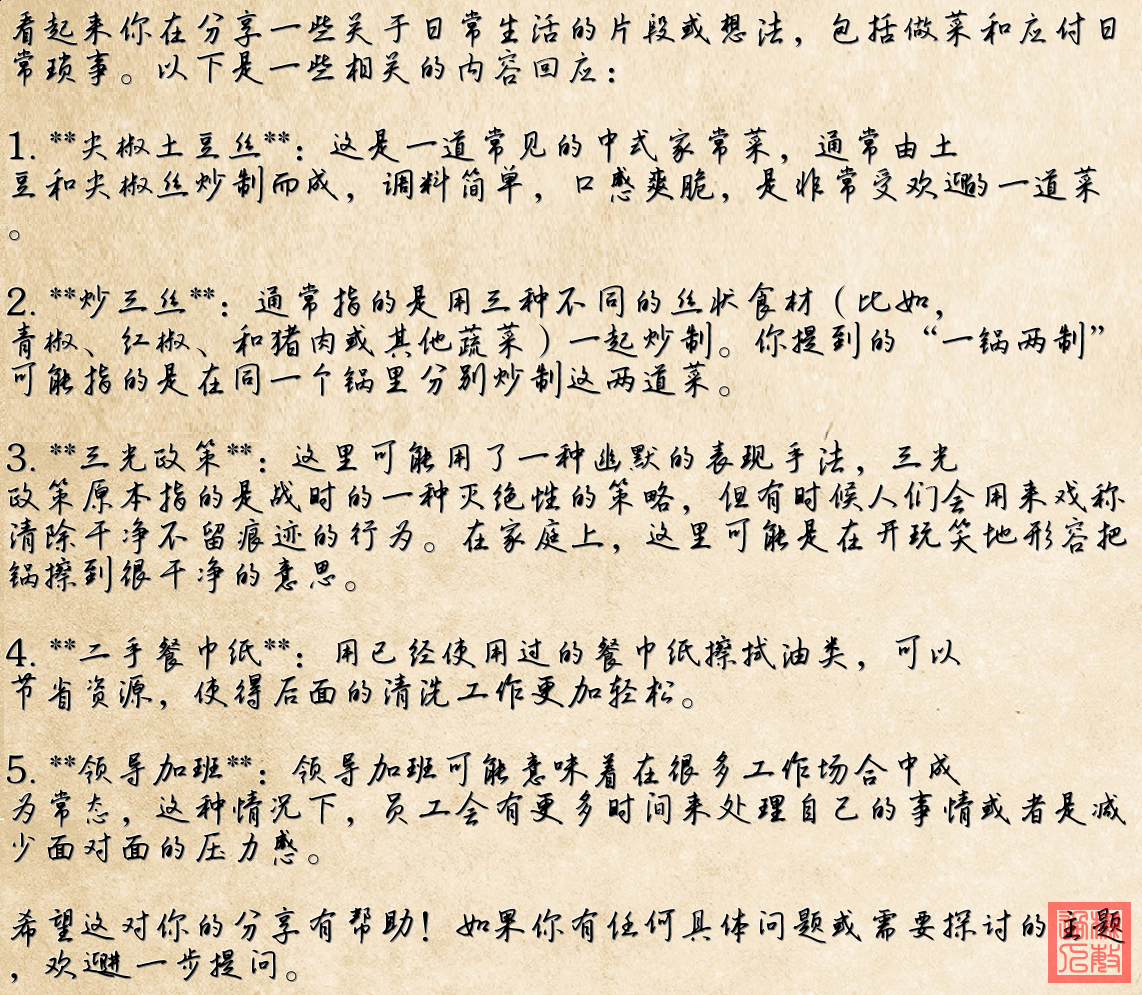 看起来你在分享一些关于日常生活的片段或想法，包括做菜和应付日
常琐事。以下是一些相关的内容回应：
1. **尖椒土豆丝**：这是一道常见的中式家常菜，通常由土
豆和尖椒丝炒制而成，调料简单，口感爽脆，是非常受欢迎的一道菜
。
2. **炒三丝**：通常指的是用三种不同的丝状食材（比如，
青椒、红椒、和猪肉或其他蔬菜）一起炒制。你提到的“一锅两制”
可能指的是在同一个锅里分别炒制这两道菜。
3. **三光政策**：这里可能用了一种幽默的表现手法，三光
政策原本指的是战时的一种灭绝性的策略，但有时候人们会用来戏称
清除干净不留痕迹的行为。在家庭上，这里可能是在开玩笑地形容把
锅擦到很干净的意思。
4. **二手餐巾纸**：用已经使用过的餐巾纸擦拭油类，可以
节省资源，使得后面的清洗工作更加轻松。
5. **领导加班**：领导加班可能意味着在很多工作场合中成
为常态，这种情况下，员工会有更多时间来处理自己的事情或者是减
少面对面的压力感。
希望这对你的分享有帮助！如果你有任何具体问题或需要探讨的主题
，欢迎进一步提问。